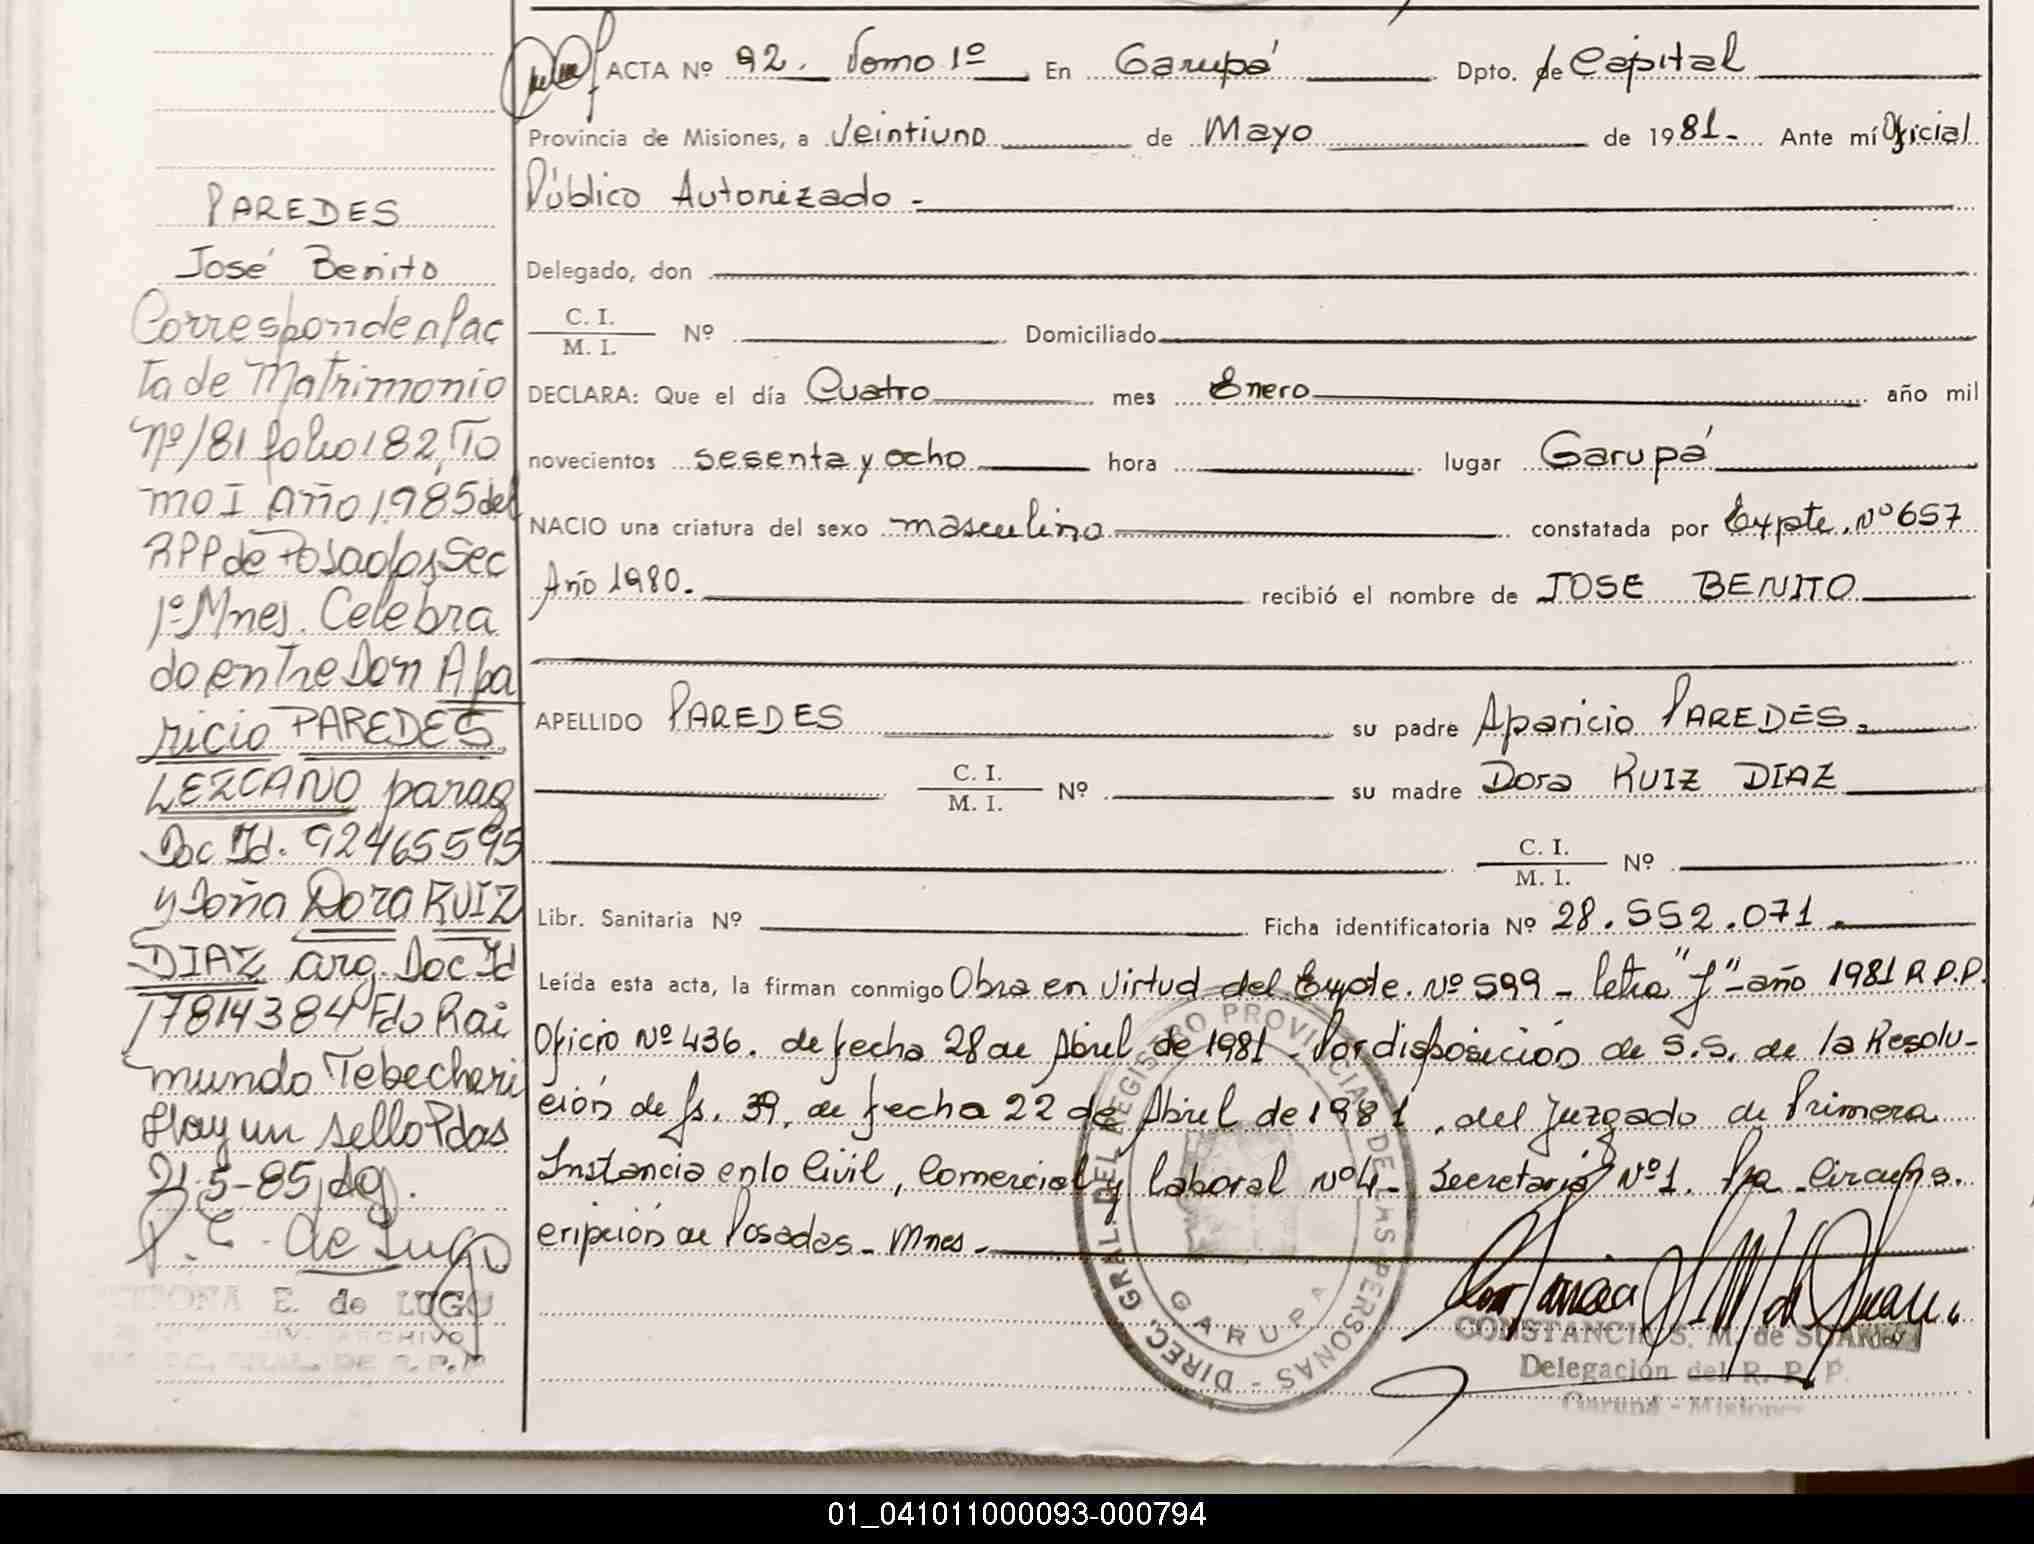 ACTA Nº 92. Tomo 1º En Garupá Dpto. de Capital
Provincia de Misiones, a Veintiuno de Mayo de 1981.- Ante mí Oficial
Público Autorizado -
Delegado, don
C. I.
M. I. Nº Domiciliado
DECLARA: Que el día Cuatro mes Enero año mil
novecientos sesenta y ocho hora lugar Garupá
NACIO una criatura del sexo masculino constatada por Expte. Nº 657
Año 1980. recibió el nombre de JOSE BENITO
APELLIDO PAREDES su padre Aparicio PAREDES.
C. I.
M. I. Nº su madre Dora RUIZ DIAZ
C. I.
M. I. Nº
Libr. Sanitaria Nº Ficha identificatoria Nº 28.552.071.
Leída esta acta, la firman conmigo Obra en Virtud del Expte. Nº 599 - letra "J" - año 1981 R.P.P.
Oficio Nº 436. de fecha 28 de Abril de 1981 - Por disposición de S.S. de la Resolu-
ción de fs. 39, de fecha 22 de Abril de 1981, del Juzgado de Primera
Instancia en lo Civil, Comercial y laboral Nº 4 - Secretaria Nº 1. Pra. Circuns.
cripción de Posadas - Mnes -
PAREDES
José Benito
Corresponde al ac
ta de Matrimonio
Nº 181 folio 182, To
mo I Año 1985 del
RPP de Posadas Sec
1º Mnes. Celebra
do entre Don Apa
ricio PAREDES
LEZCANO parag
Doc Id. 92465595
y Doña Dora RUIZ
DIAZ arg. Doc Id
17814384 Fdo Rai
mundo Tebechari
Hay un sello Pdas
21-5-85 dg.
P. E. de Lugo
E. de LUGO
ARCHIVO
GRAL. DE R. P. P
DIREC. GRAL. DEL REGISTRO PROVINCIAL DE LAS PERSONAS -
GARUPA
CONSTANCIA S. M. de SUAREZ
Delegación del R. P. P.
Garupá - Misiones
01_041011000093-000794